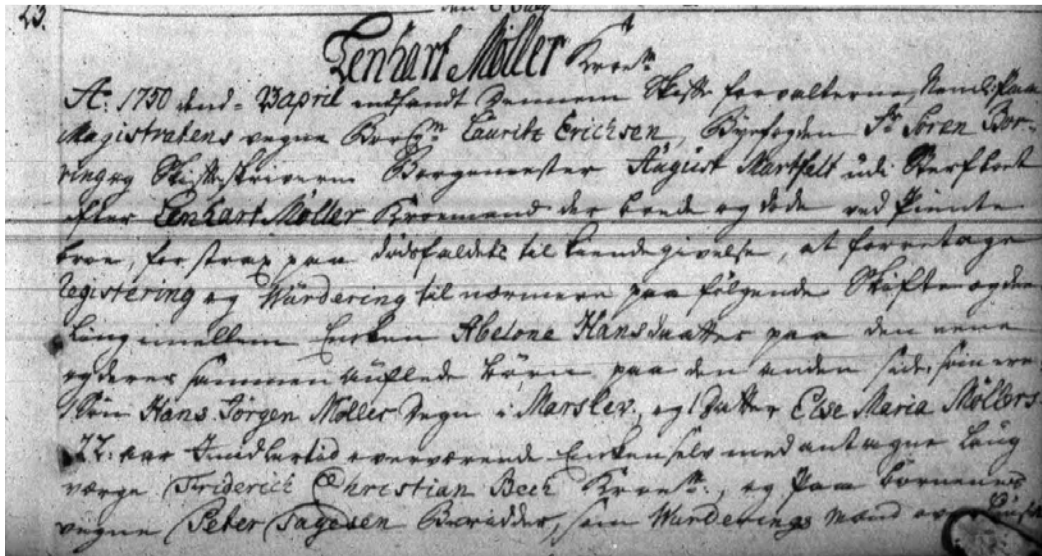 23.
Lenhart Møller Kroem.
Ao. 1750 dend 23 april indfandt dennem Skifte forvalterne, Naml: paa
Magistratens vegne Lauritz Erichsen, Byefogden Sr. Søren Bor-
ring og Skifteskriveren Borgemester August Martfelt udi Sterfboet
efter Lenhart Møller Kroemand der boede og døde ved
broe, for strax paa dødsfaldets til kiendegivelse, at forretage
registering og Wurdering til nærmere paa følgende Skifte og dee
ling imellem Enken Abelone Hansdaatter paa den eene
og deres sammen auflede børn paa den anden side, som ere
1 Søn Hans Jørgen Møller Degn i Marslev, og 1 Datter Else Maria Møllers
22: aar Imidlertid overværende Enken selv med antagne laug
værge Friderich Christian Bech Kroem:, og paa børnenes
vegne Peter Tagesen Berider, som Wurderings mænd